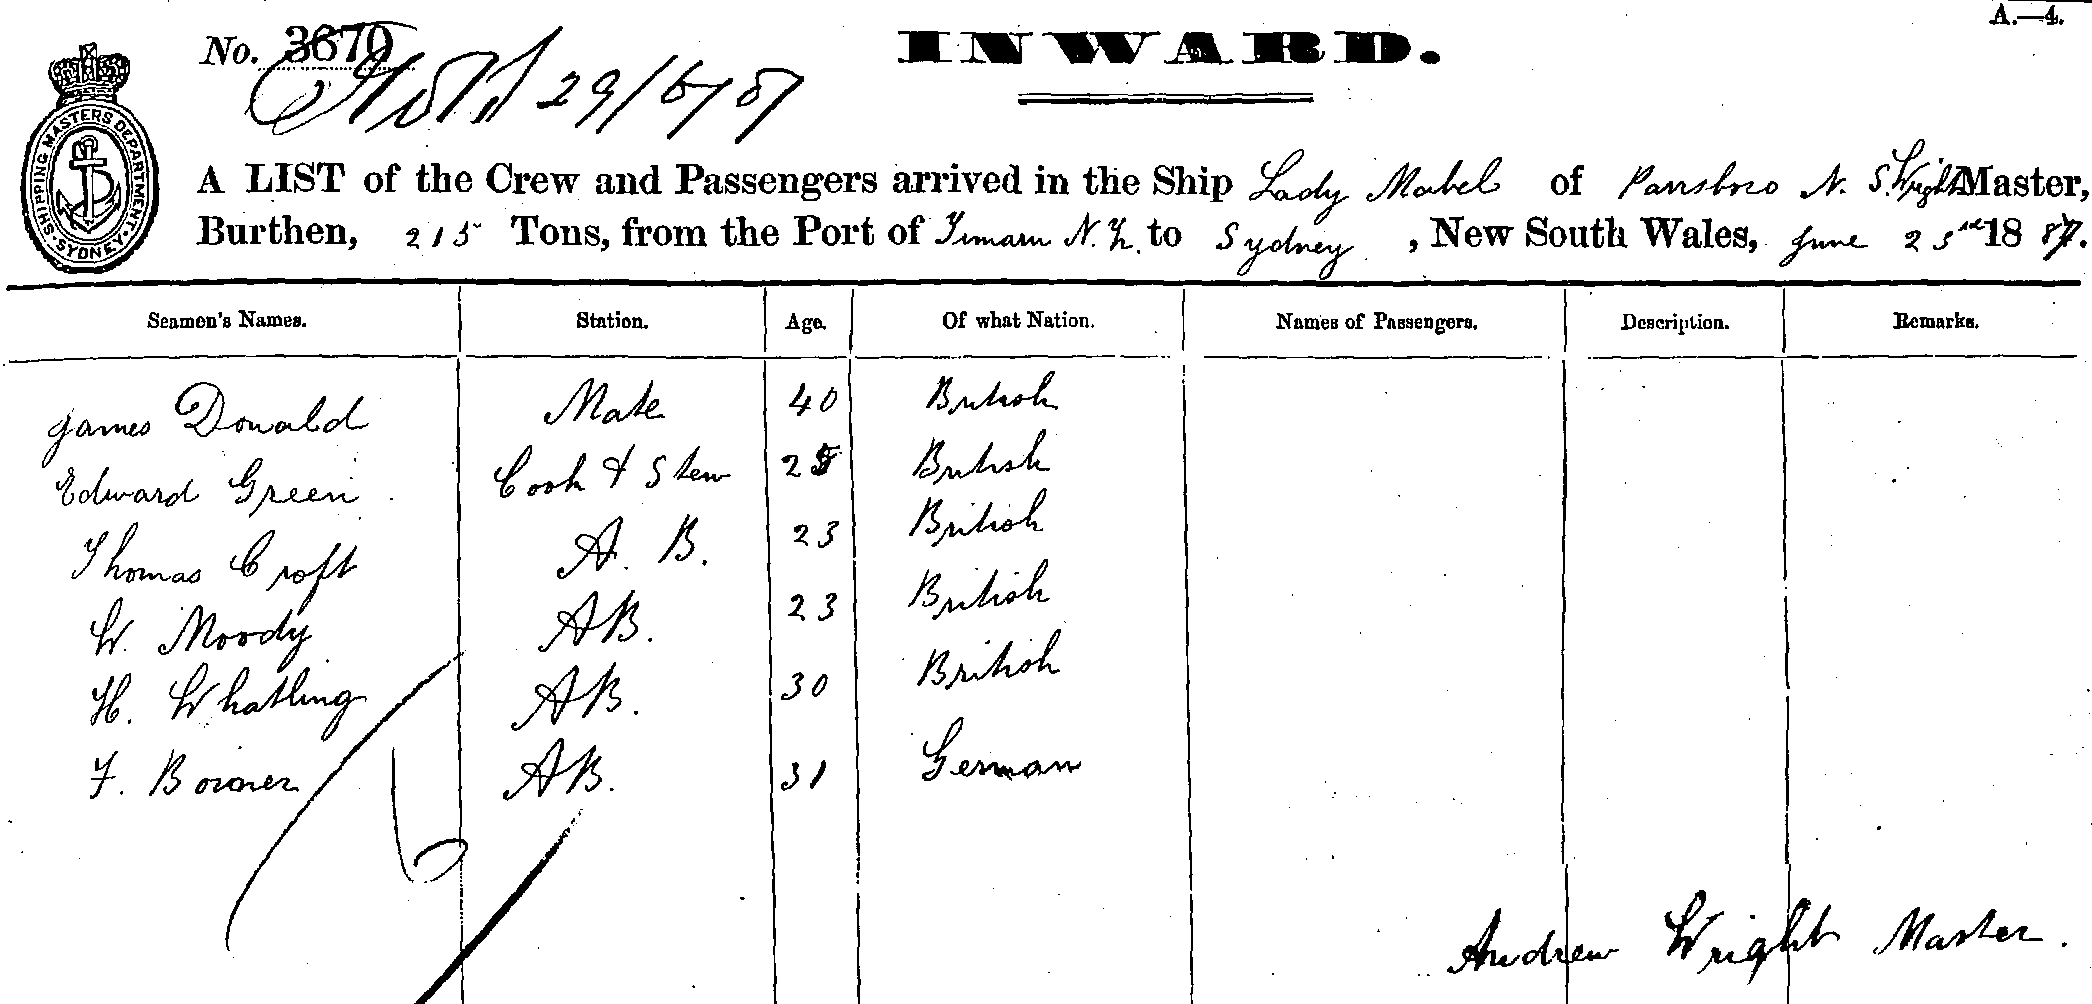 A.—4.
No. 3670 INWARD.
29/6/87
SHIPPING MASTERS DEPARTMENT. SYDNEY.
A LIST of the Crew and Passengers arrived in the Ship Lady Mabel of Parrsboro N. S. Wright Master,
Burthen, 215 Tons, from the Port of Timaru N.Z. to Sydney, New South Wales, June 25 1887.
Seamen's Names. Station. Age. Of what Nation. Names of Passengers. Description. Remarks.
James Donald Mate 40 British
Edward Green Cook & Stew 25 British
Thomas Croft A. B. 23 British
W. Moody AB. 23 British
H. Whatling AB. 30 British
F. Borner AB. 31 German
6
Andrew Wright Master.